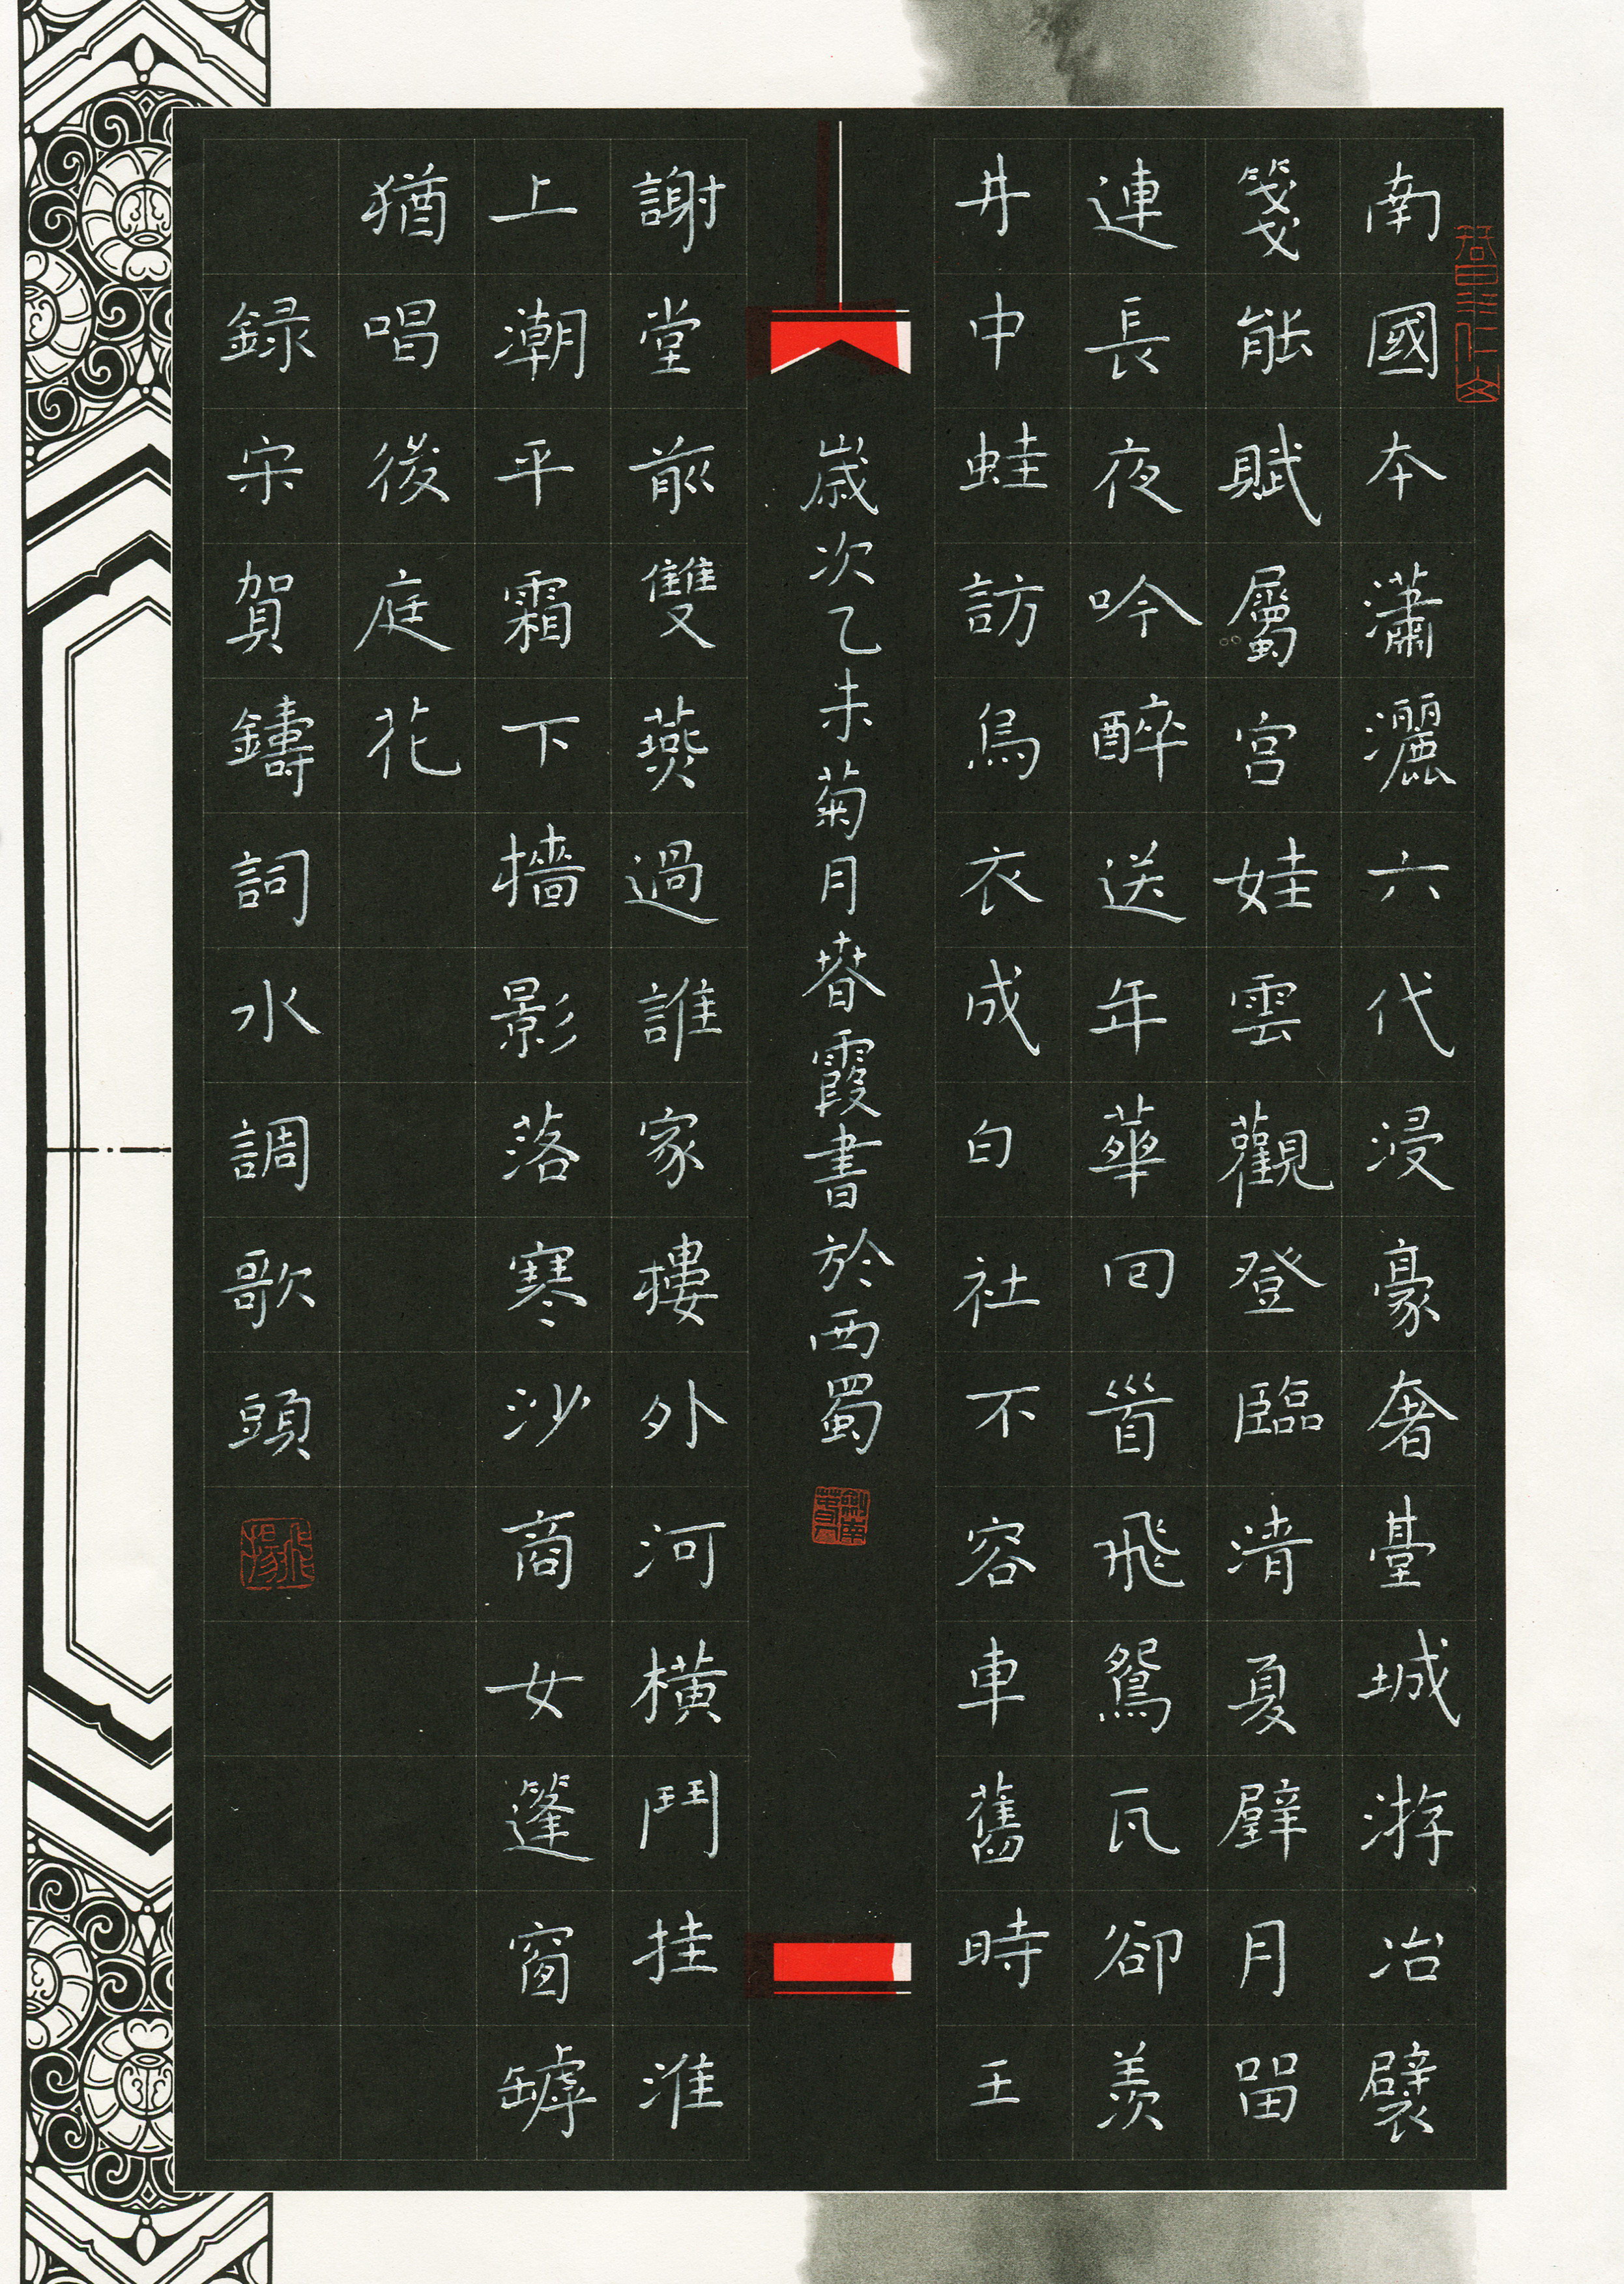 南國本瀟灑六代浸豪奢臺城游冶襞
箋能賦屬宮娃雲觀登臨清夏壁月留
連長夜吟醉送年華回首飛鴛瓦卻羨
井中蛙訪烏衣成白社不容車舊時王
歲次乙未菊月春霞書於西蜀
謝堂前雙燕過誰家樓外河橫鬥挂淮
上潮平霜下檣影落寒沙商女篷窗罅
猶唱後庭花
錄宋賀鑄詞水調歌頭